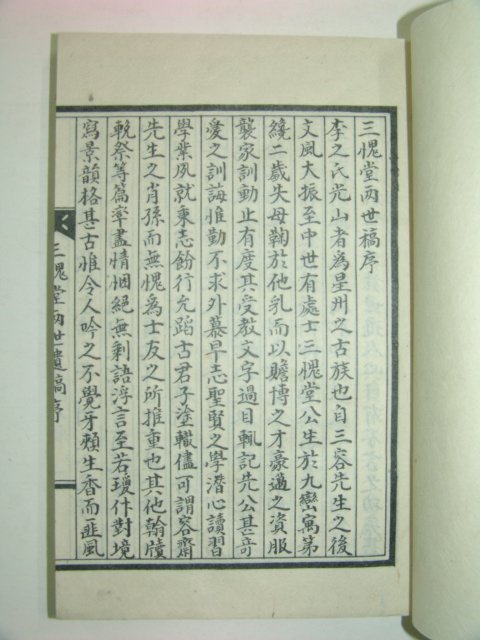 三愧堂兩世稿序
李之氏光山者爲星州之古族也自三容先生之後
文風大振至中世有處士三愧堂公生於九巒寓第
纔二歲失母鞠於他乳而以贍博之才豪邁之資服
襲家訓動止有度其受教文字過目輒記先公甚奇
愛之訓誨惟勤不求外慕早志聖賢之學潛心讀習
學業夙就秉志飭行允蹈古君子塗轍儘可謂容齋
先生之肖孫而無愧爲士友之所推重也其他翰牘
輓祭等篇率盡情悃絕無剩語浮言至若瓊什對境
寫景韻格甚古惟令人吟之不覺牙頰生香而匪風
三愧堂兩世遺稿序